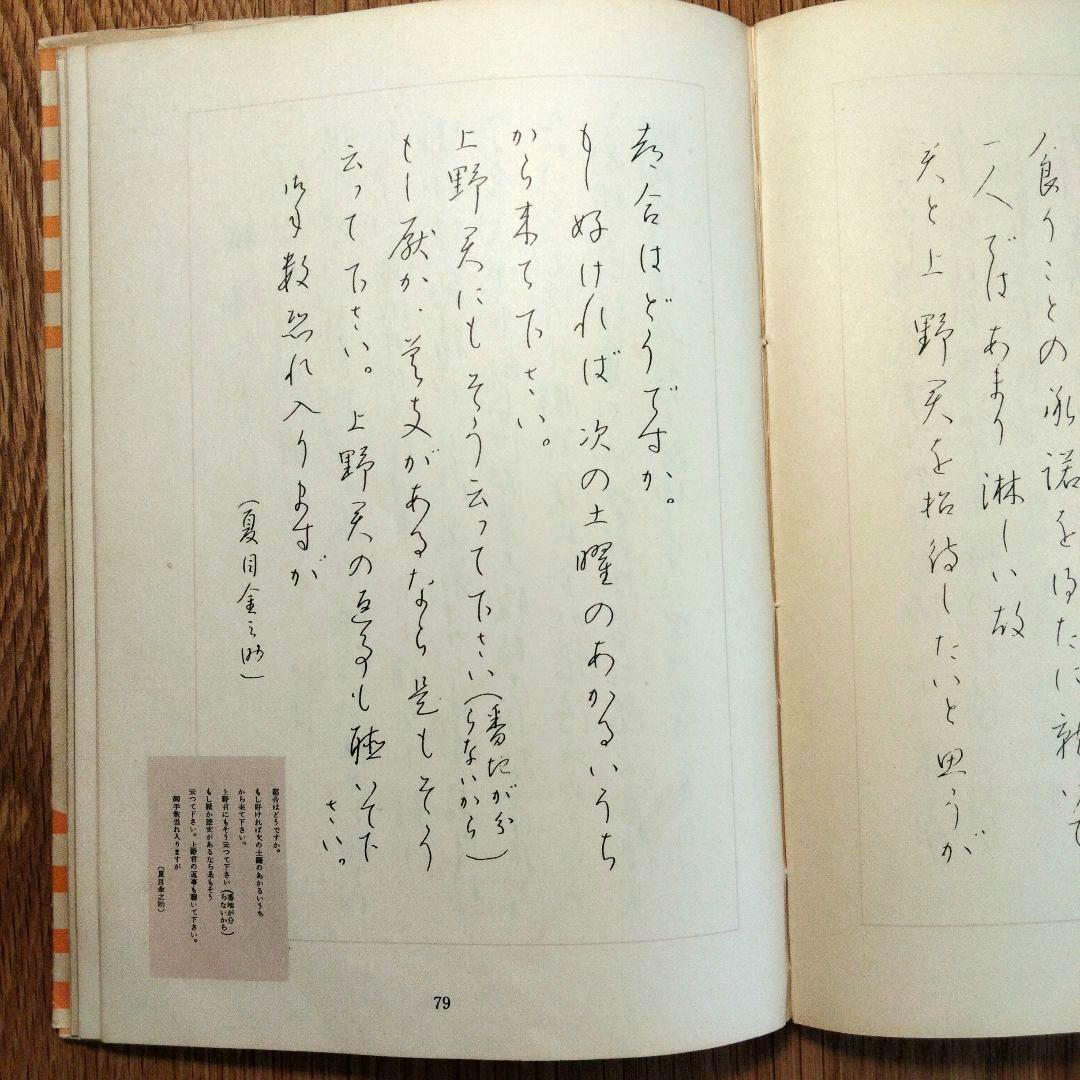 食うことの承諾を得たに就いて
一人ではあまり淋しい故
君と上野君を招待したいと思うが
都合はどうですか。
もし好ければ次の土曜のあかるいうち
から来て下さい。
上野君にもそう云って下さい(番地が分
らないから)
もし厭か、差支があるなら是もそう
云って下さい。上野君の返事も聴いて下
さい。
御手数恐れ入りますが
(夏目金之助)
都合はどうですか。
もし好ければ次の土曜のあかるいうち
から来て下さい。
上野君にもそう云つて下さい(番地が分
らないから)
もし厭か差支があるなら是もそう
云つて下さい。上野君の返事も聴いて下さい。
御手数恐れ入りますが
(夏目金之助)
79